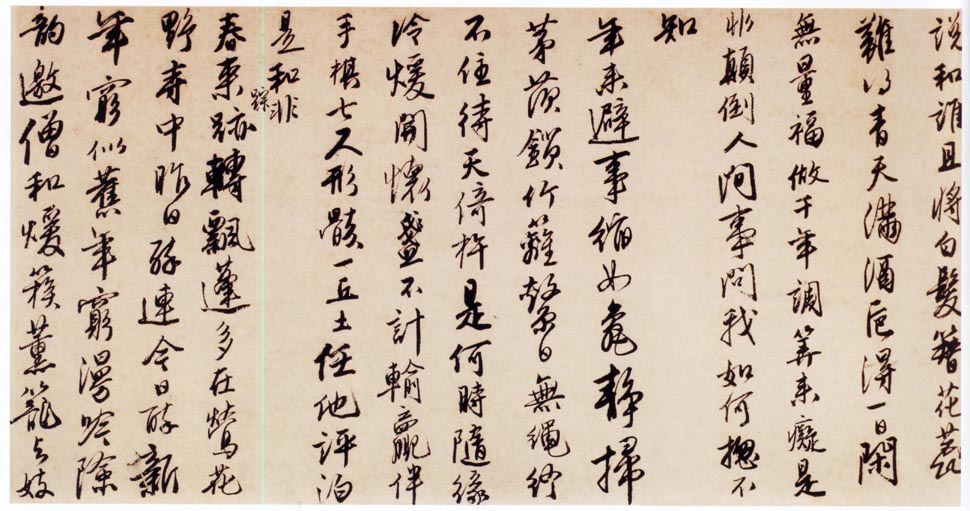 説和誰且將白髮簪花蕊
難得青天滿酒卮得一日閑
無量福做千年調笑來癡是
非顛倒人间事問我如何摠不
知
年來避事縮如龜靜掃
茅茨鎖竹籬繫日無繩
不住待天倚杵是何時隨緣
冷煖開懷盞不計輸贏伴
手棋七尺形骸一丘土任他評泊
是和非
春來踪跡轉飄蓬多在鶯花
野寺中昨日醉連今日醉新
年窮似舊年窮漫吟除
韵邀僧和煖簇薰籠与妓